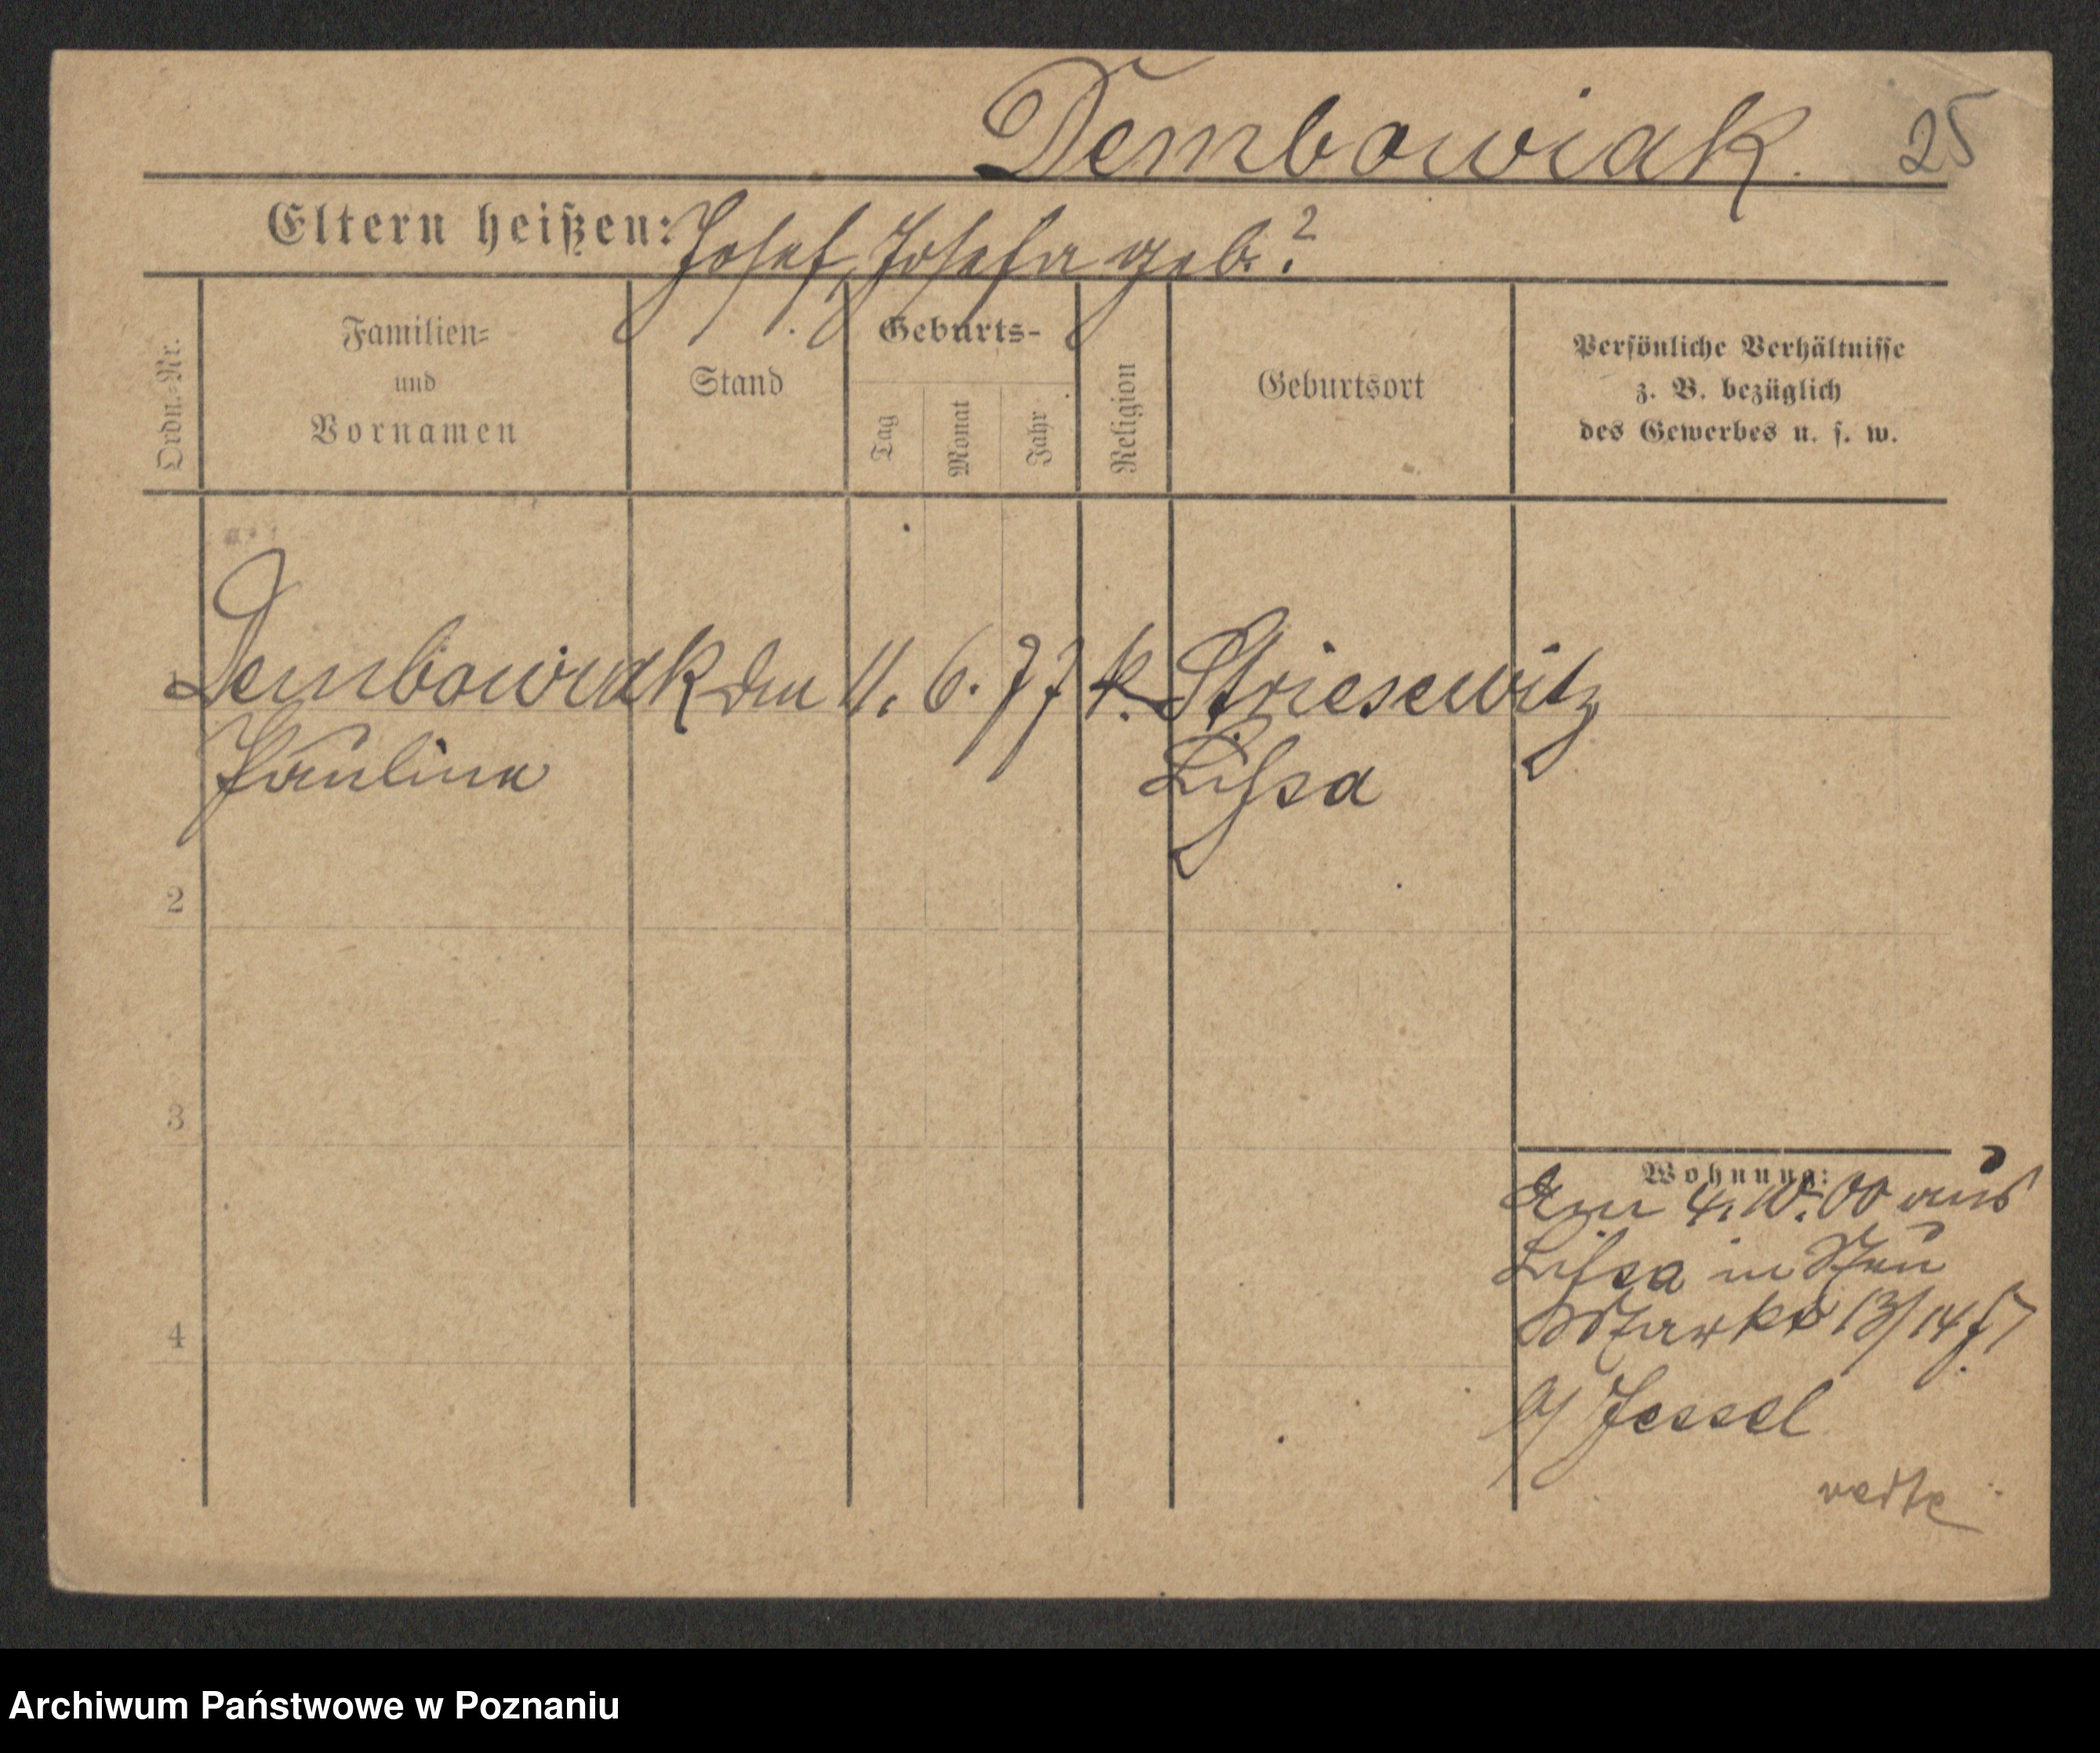 Dembowiak. 25
Eltern heißen: Josef, Josefa geb. ?
Ordn.-Nr.
Familien-
und
Vornamen
Stand
Geburts-
Tag
Monat
Jahr
Religion
Geburtsort
Persönliche Verhältnisse
z. B. bezüglich
des Gewerbes u. s. w.
Dembowiak 11. 6. 77 k. Striesewitz
Paulina Lissa
2
3
4
Wohnung:
Am 4. 10. 00 aus
Lissa in
13/14
b/ Jessel
Archiwum Państwowe w Poznaniu